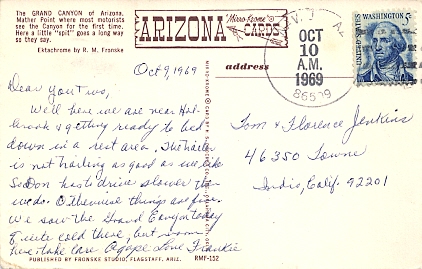 The GRAND CANYON of Arizona.
Mather Point where most motorists
see the Canyon for the first time.
Here a little "spit" goes a long way
so they say.
Ektachrome by R. M. Fronske
ARIZONA
Mirro-Krome
CARDS
address
OCT
10
A.M.
1969
86509
WASHINGTON 5c
UNITED STATES
Oct 9, 1969
Dear You Two,
Well here we are near Hol-
brook & getting ready to bed
down in a rest area. The trailer
is not trailing as good as we like
So Don has to drive slower than
we do. Otherwise things are fine.
We saw the Grand Canyon today
Quite cold there, but warm
here take care Agape Love Frankie
Tom & Florence Jenkins
46350 Towne
Indio, Calif. 92201
PUBLISHED BY FRONSKE STUDIO, FLAGSTAFF, ARIZ.
RMF-152